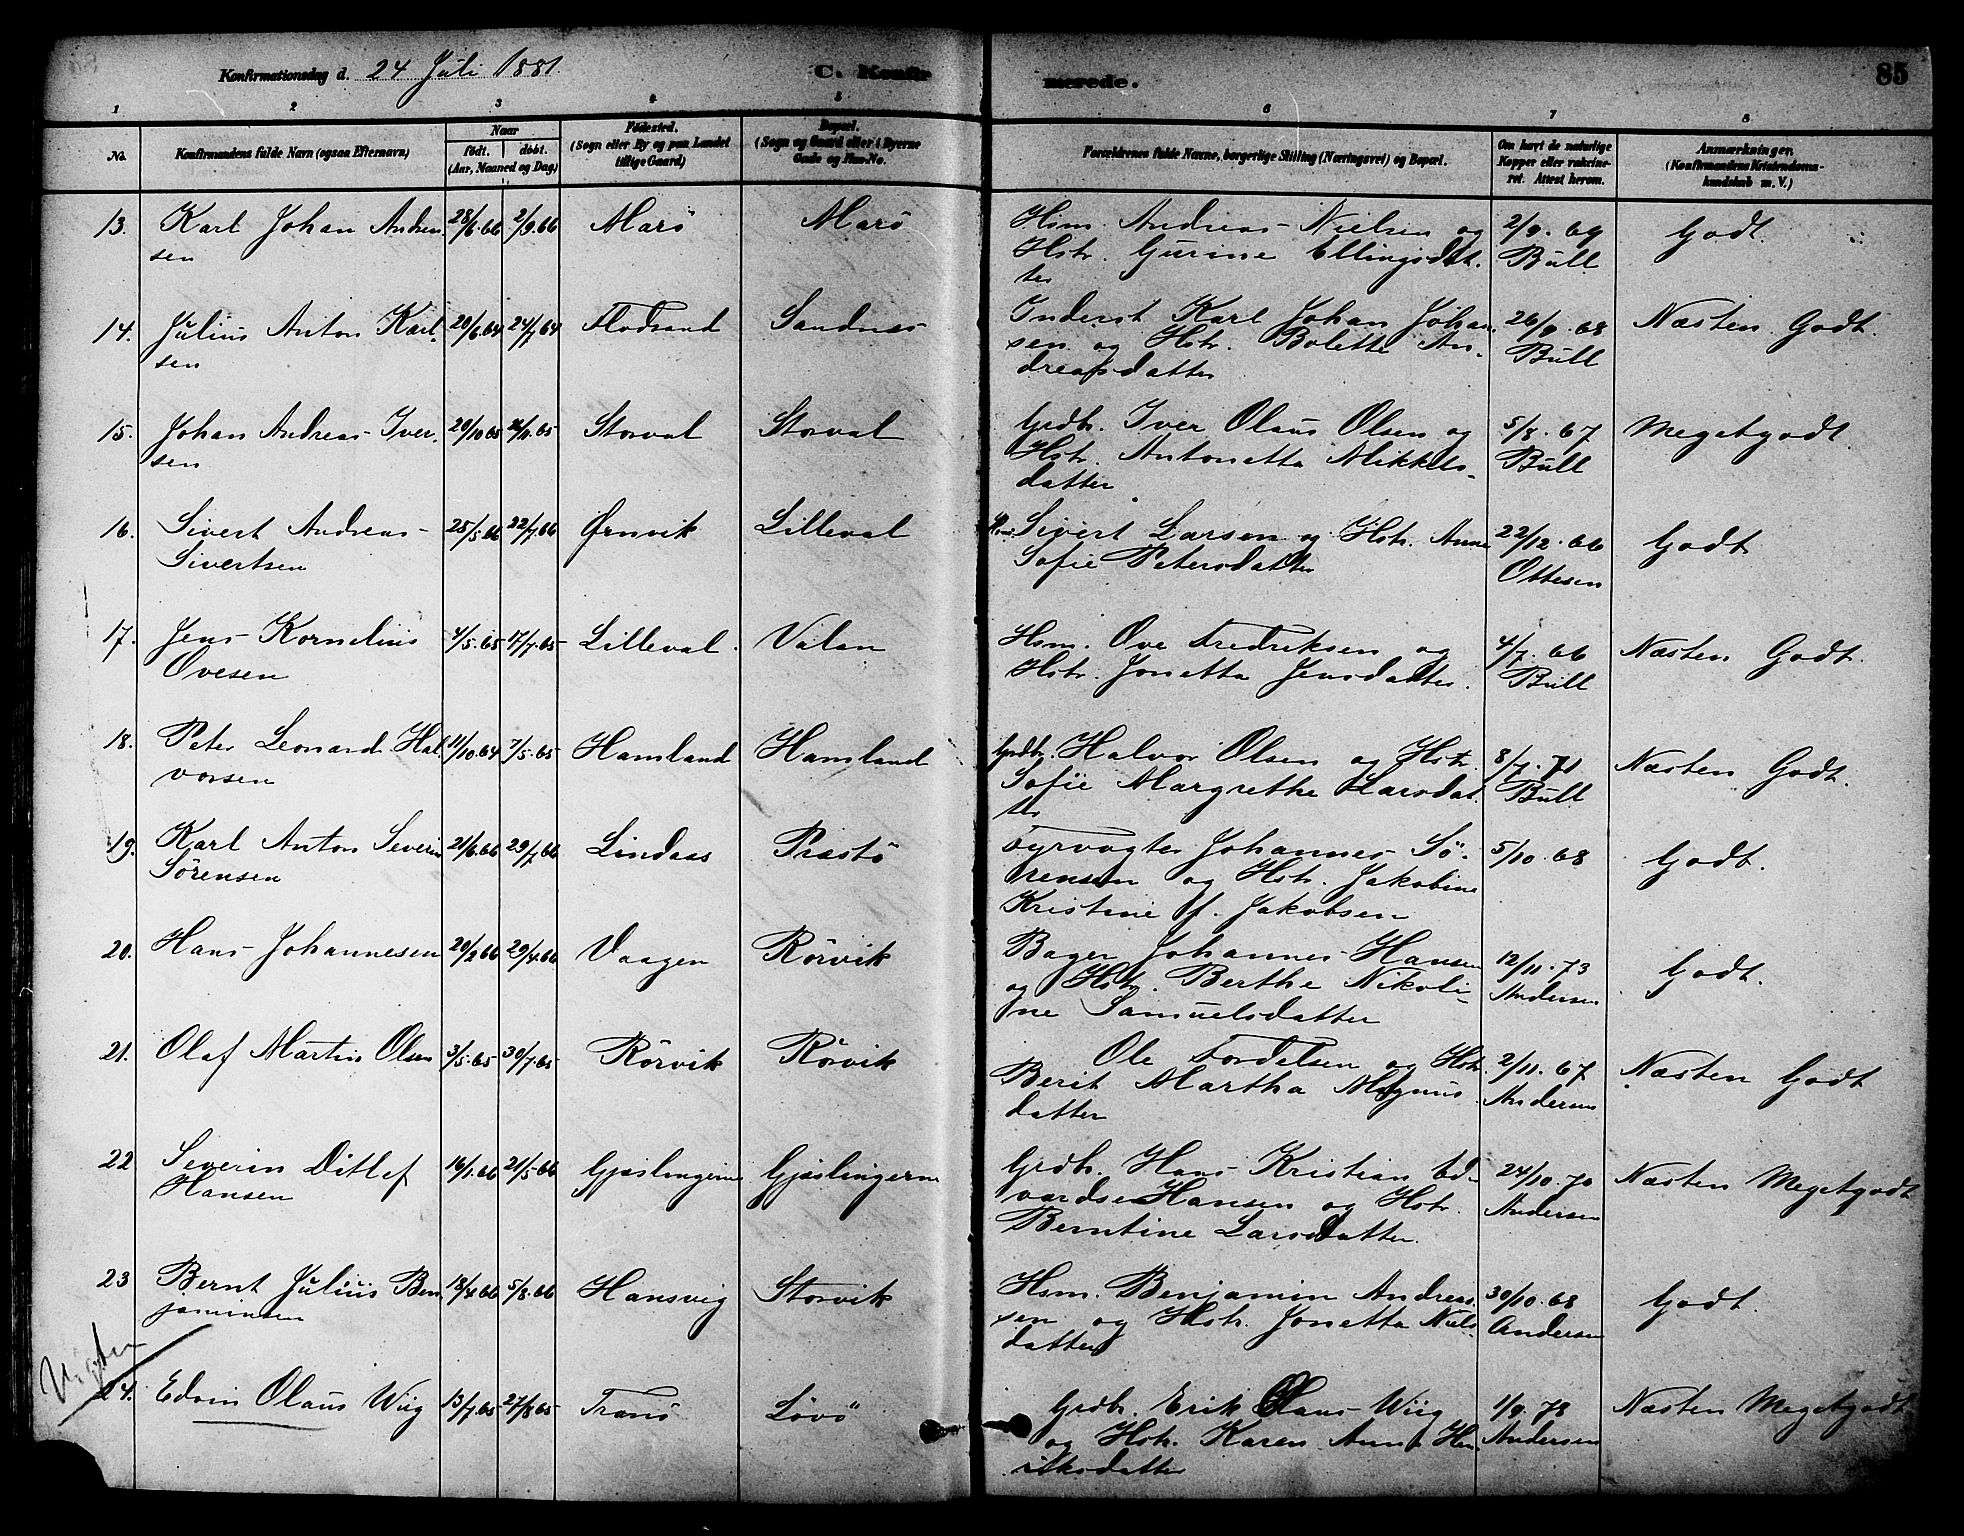 Konfirmationsdag d. 24 Juli 1881.
C. Konfirmerede.
85
1 2 3 4 5 6 7 8
No.
Konfirmandens fulde Navn (ogsaa Efternavn)
Naar
født. døbt.
(Aar, Maaned og Dag)
Fødested.
(Sogn eller By og paa Landet
tillige Gaard)
Bopæl.
(Sogn og Gaard eller i Byerne
Gade og Hus-No.
Forældrenes fulde Navne, borgerlige Stilling (Næringsvei) og Bopæl.
Om havt de naturlige
Kopper eller vakcine-
ret. Attest herom.
Anmærkninger.
(Konfirmandens Kristendoms-
kundskab m. V.)
13. Karl Johan Andrea 28/6.66 2/9.66 Marö Marö Hsm. Andreas Nielsen og 2/9.69 Godt.
sen Hstr. Gurine Ellingsdat. Büll
ter
14. Julius Anton Karl- 20/6.64 24/7.64 Flodsand Sandnes Inderst Karl Johan Johan 26/9.68 Næsten Godt.
sen sen og Hstr. Bolette An- Büll
dreasdatter
15. Johan Andreas Iver, 20/10.65 Storval Storval Grdb. Iver Olaus Olsen og 5/8.67 Megetgodt.
sen Hstr. Antonetta Mikkels- Büll
datter
16. Sivert Andreas 25/5.66 22/7.66 Ørnvik Lilleval Sivert Larsen og Hstr. Anne 22/12.66 Godt
Sivertsen Sofie Petersdatter Ottesen
17. Jens Kornelius 4/5.65 17/7.65 Lilleval. Valan Hsm. Ove Fredriksen og 4/7.66 Næsten Godt.
Ovesen Hstr. Jonetta Jensdatter. Büll
18. Peter Leonard Hal 11/10.64 7/5.65 Hamland Hamland Grdbr. Halvor Olsen og Hstr. 8/7.71 Næsten Godt.
vorsen Sofie Margrethe Larsdat. Büll
ter
19. Karl Anton Severin 21/6.66 29/7.66 Lindaas Præstö Fyrvogter Johannes Sö- 5/10.68 Godt.
Sörensen rensen og Hstr. Jakobine
Kristine f. Jakobsen
20. Hans Johannesen 20/2.66 29/4.66 Vaagen Rörvik Bager Johannes Hansen 12/11.73 Godt.
og Hstr. Berthe Nikoli- Andersen
ne Samuelsdatter
21. Olaf Martin Olsen 3/5.65 30/7.65 Rörvik Rörvik Ole Tordelsen og Hstr. 2/11.67 Næsten Godt
Berit Martha Magnus Andersen
datter
22 Severin Ditlef 16/1.66 21/5.66 Gjæslingerne Gjæslingerne Grdb. Hans Kristian Ed- 24/10.70 Næsten Megetgodt
Hansen vardse Hansen og Hstr. Andersen
Berntine Larsdatter.
23 Bernt Julius Ben 18/4.66 5/8.66 Hansvig Storvik Hsm. Benjamin Andrea 30/10.68 Godt.
jaminsen sen og Hstr. Jonetta Niels Andersen
datter
Vigten
24. Edvin Olaus Wiig 13/7.65 27/8.65 Tranö Lövö Grdb. Erik Olaus Wiig 1/9.78 Næsten Megetgodt
og Hstr. Karen Anna Hen Andersen
riksdatter